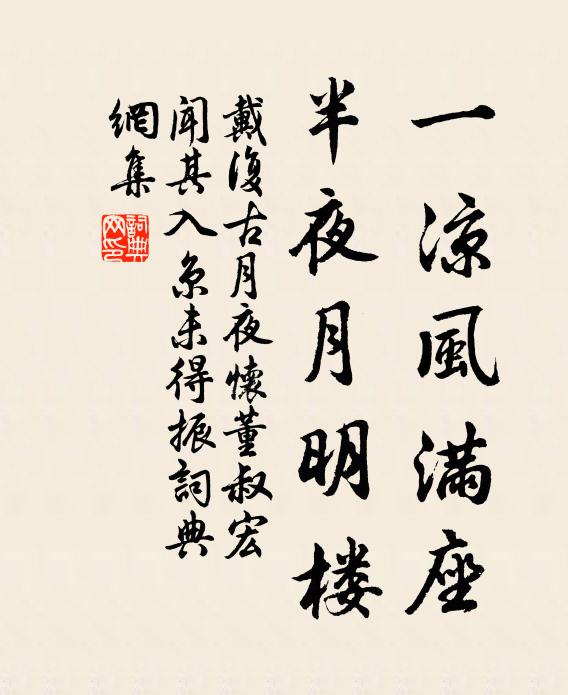 一凉風满座
半夜月明楼
戴復古月夜懷董叔宏
聞其入京未得振詞典
網集
詞典網印